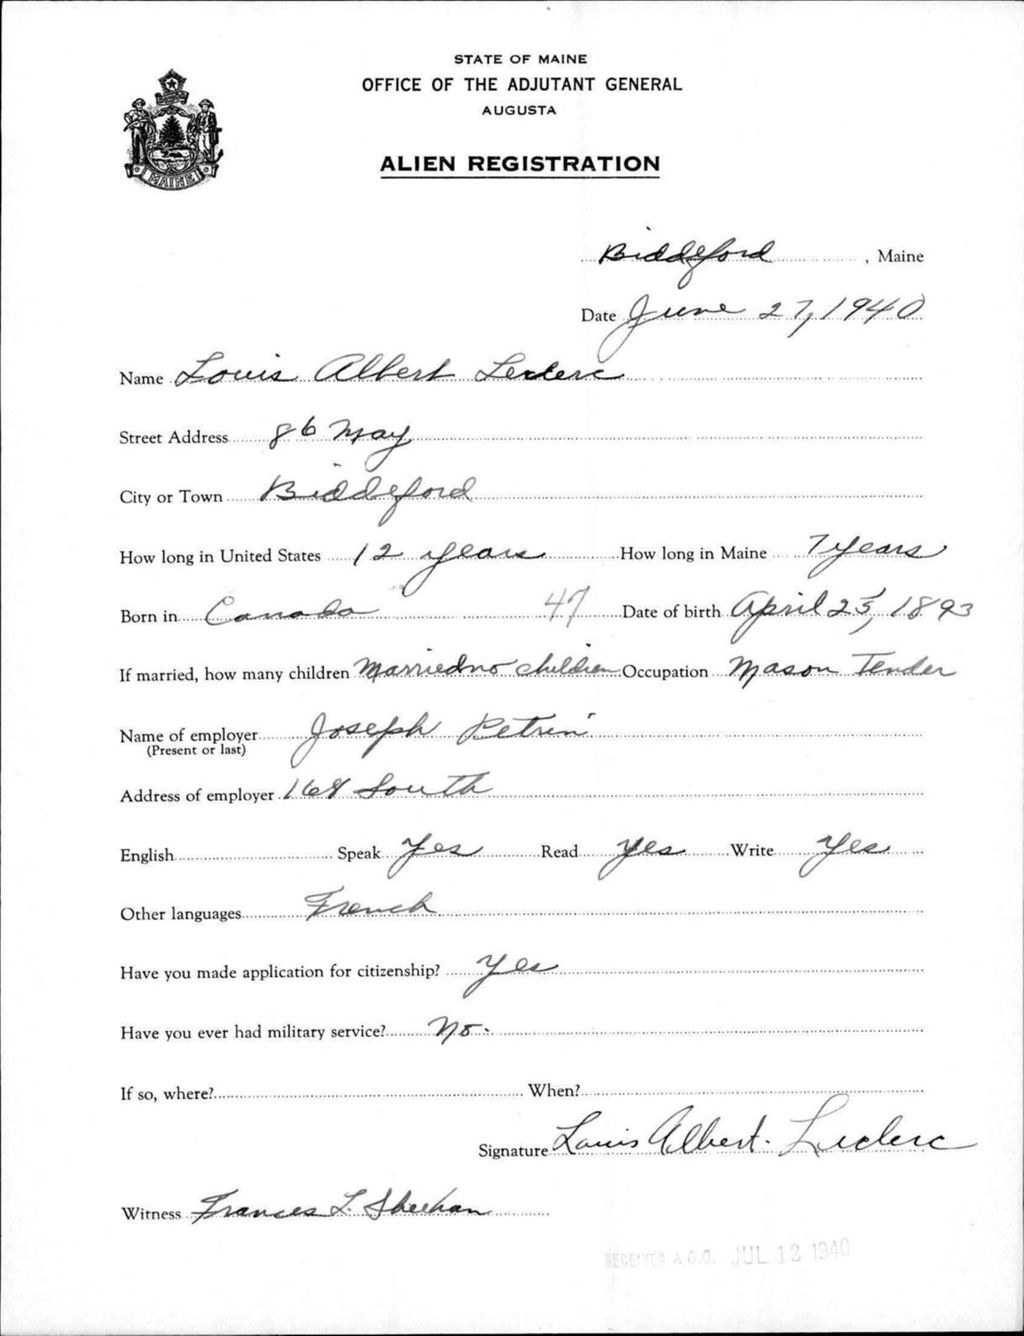 STATE OF MAINE
OFFICE OF THE ADJUTANT GENERAL
AUGUSTA
ALIEN REGISTRATION
MAINE
Biddeford, Maine
Date June 27, 1940
Name Louis Albert Leclerc
Street Address 86 May
City or Town Biddeford
How long in United States 12 years How long in Maine 7 years
Born in Canada 47 Date of birth April 25, 1893
If married, how many children Married no children Occupation Mason Tender
Name of employer Joseph Petrin
(Present or last)
Address of employer 168 South
English Speak Yes Read Yes Write Yes
Other languages French
Have you made application for citizenship? Yes
Have you ever had military service? No.
If so, where? When?
Signature Louis Albert Leclerc
Witness Frances L. Sheehan
RECEIVED A.G.O. JUL 12 1940